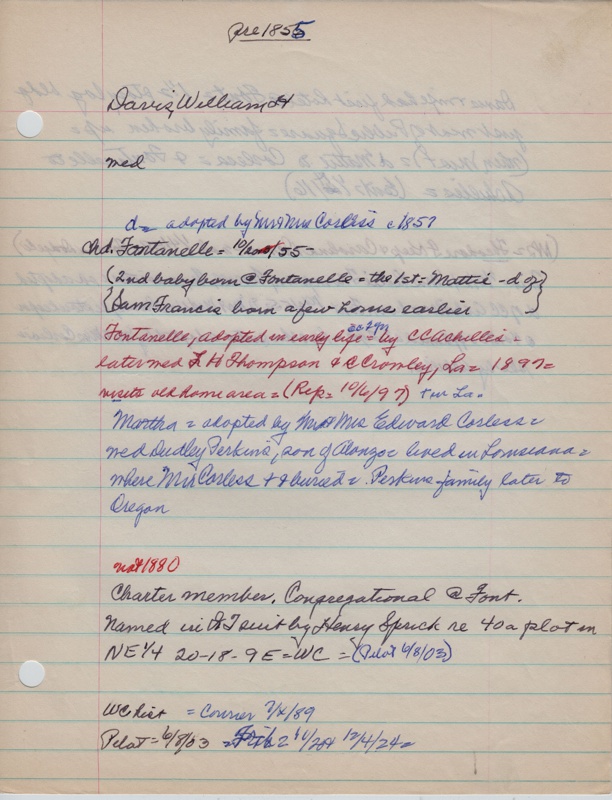 pre 1855
Davis, William
med
d = adopted by Mr & Mrs Corless c 1857
chd. Fontanelle = 10/ /55
(2nd baby born @ Fontanelle = the 1st = Mattie - d of)
{Sam Francis born a few hours earlier}
Fontanelle, adopted in early life = by CC Achilles -
later med L H Thompson & @ Crowley, La = 1897 =
visits old home area = (Rep = 10/6/97) + in La.
Martha = adopted by Mr & Mrs Edward Corless =
med Dudley Perkins, son of Alonzo = lived in Louisiana =
where Mrs Corless + d buried = Perkins family later to
Oregon
not 1880
Charter member, Congregational @ Font.
Named in suit by Henry Sprick re 40 a plot in
NE 1/4 20-18-9 E = WC = (Pilot 6/8/03)
WC Hist = Courier 7/4/89
Pilot = 6/8/03 12/4/24 =